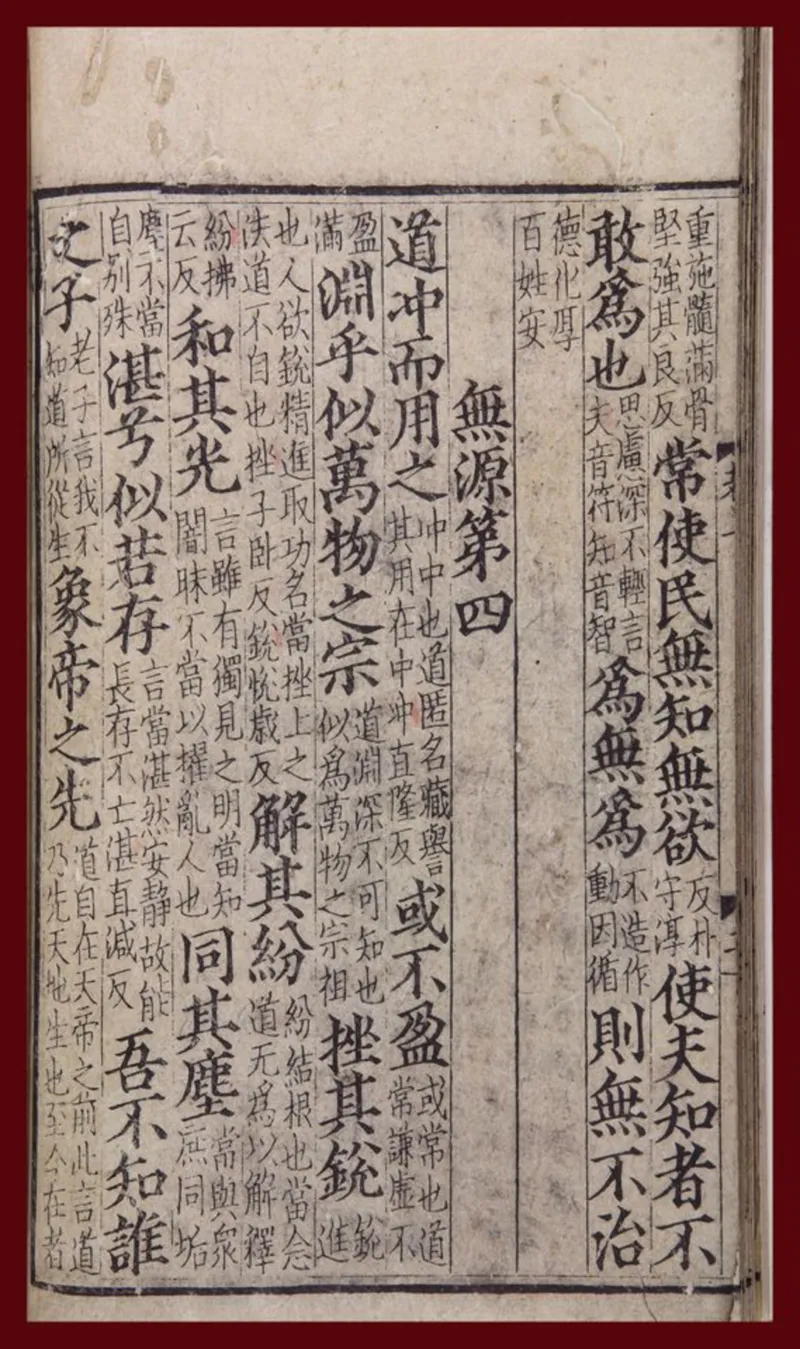 重施髓滿骨堅強其良反常使民無知無欲反朴守淳使夫知者不
敢爲也思慮深不輕言夫音符知音智爲無爲不造作動因循則無不治
德化厚百姓安
無源第四
道冲而用之冲中也道匿名藏譽其用在中冲直隆反或不盈或常也道常謙虛不
盈滿淵乎似萬物之宗道淵深不可知也似爲萬物之宗祖挫其銳銳進
也人欲銳精進取功名當挫上之佚道不自也挫子卧反銳恱歲反解其紛紛結根也當念道无爲以解釋
紛拂云反和其光言雖有獨見之明當知闇昧不當以擢亂人也同其塵當與衆庶同垢
塵不當自别殊湛兮似若存言當湛然安靜故能長存不亡湛直減反吾不知誰
之子老子言我不知道所從生象帝之先道自在天帝之前此言道乃先天地生也至今在者